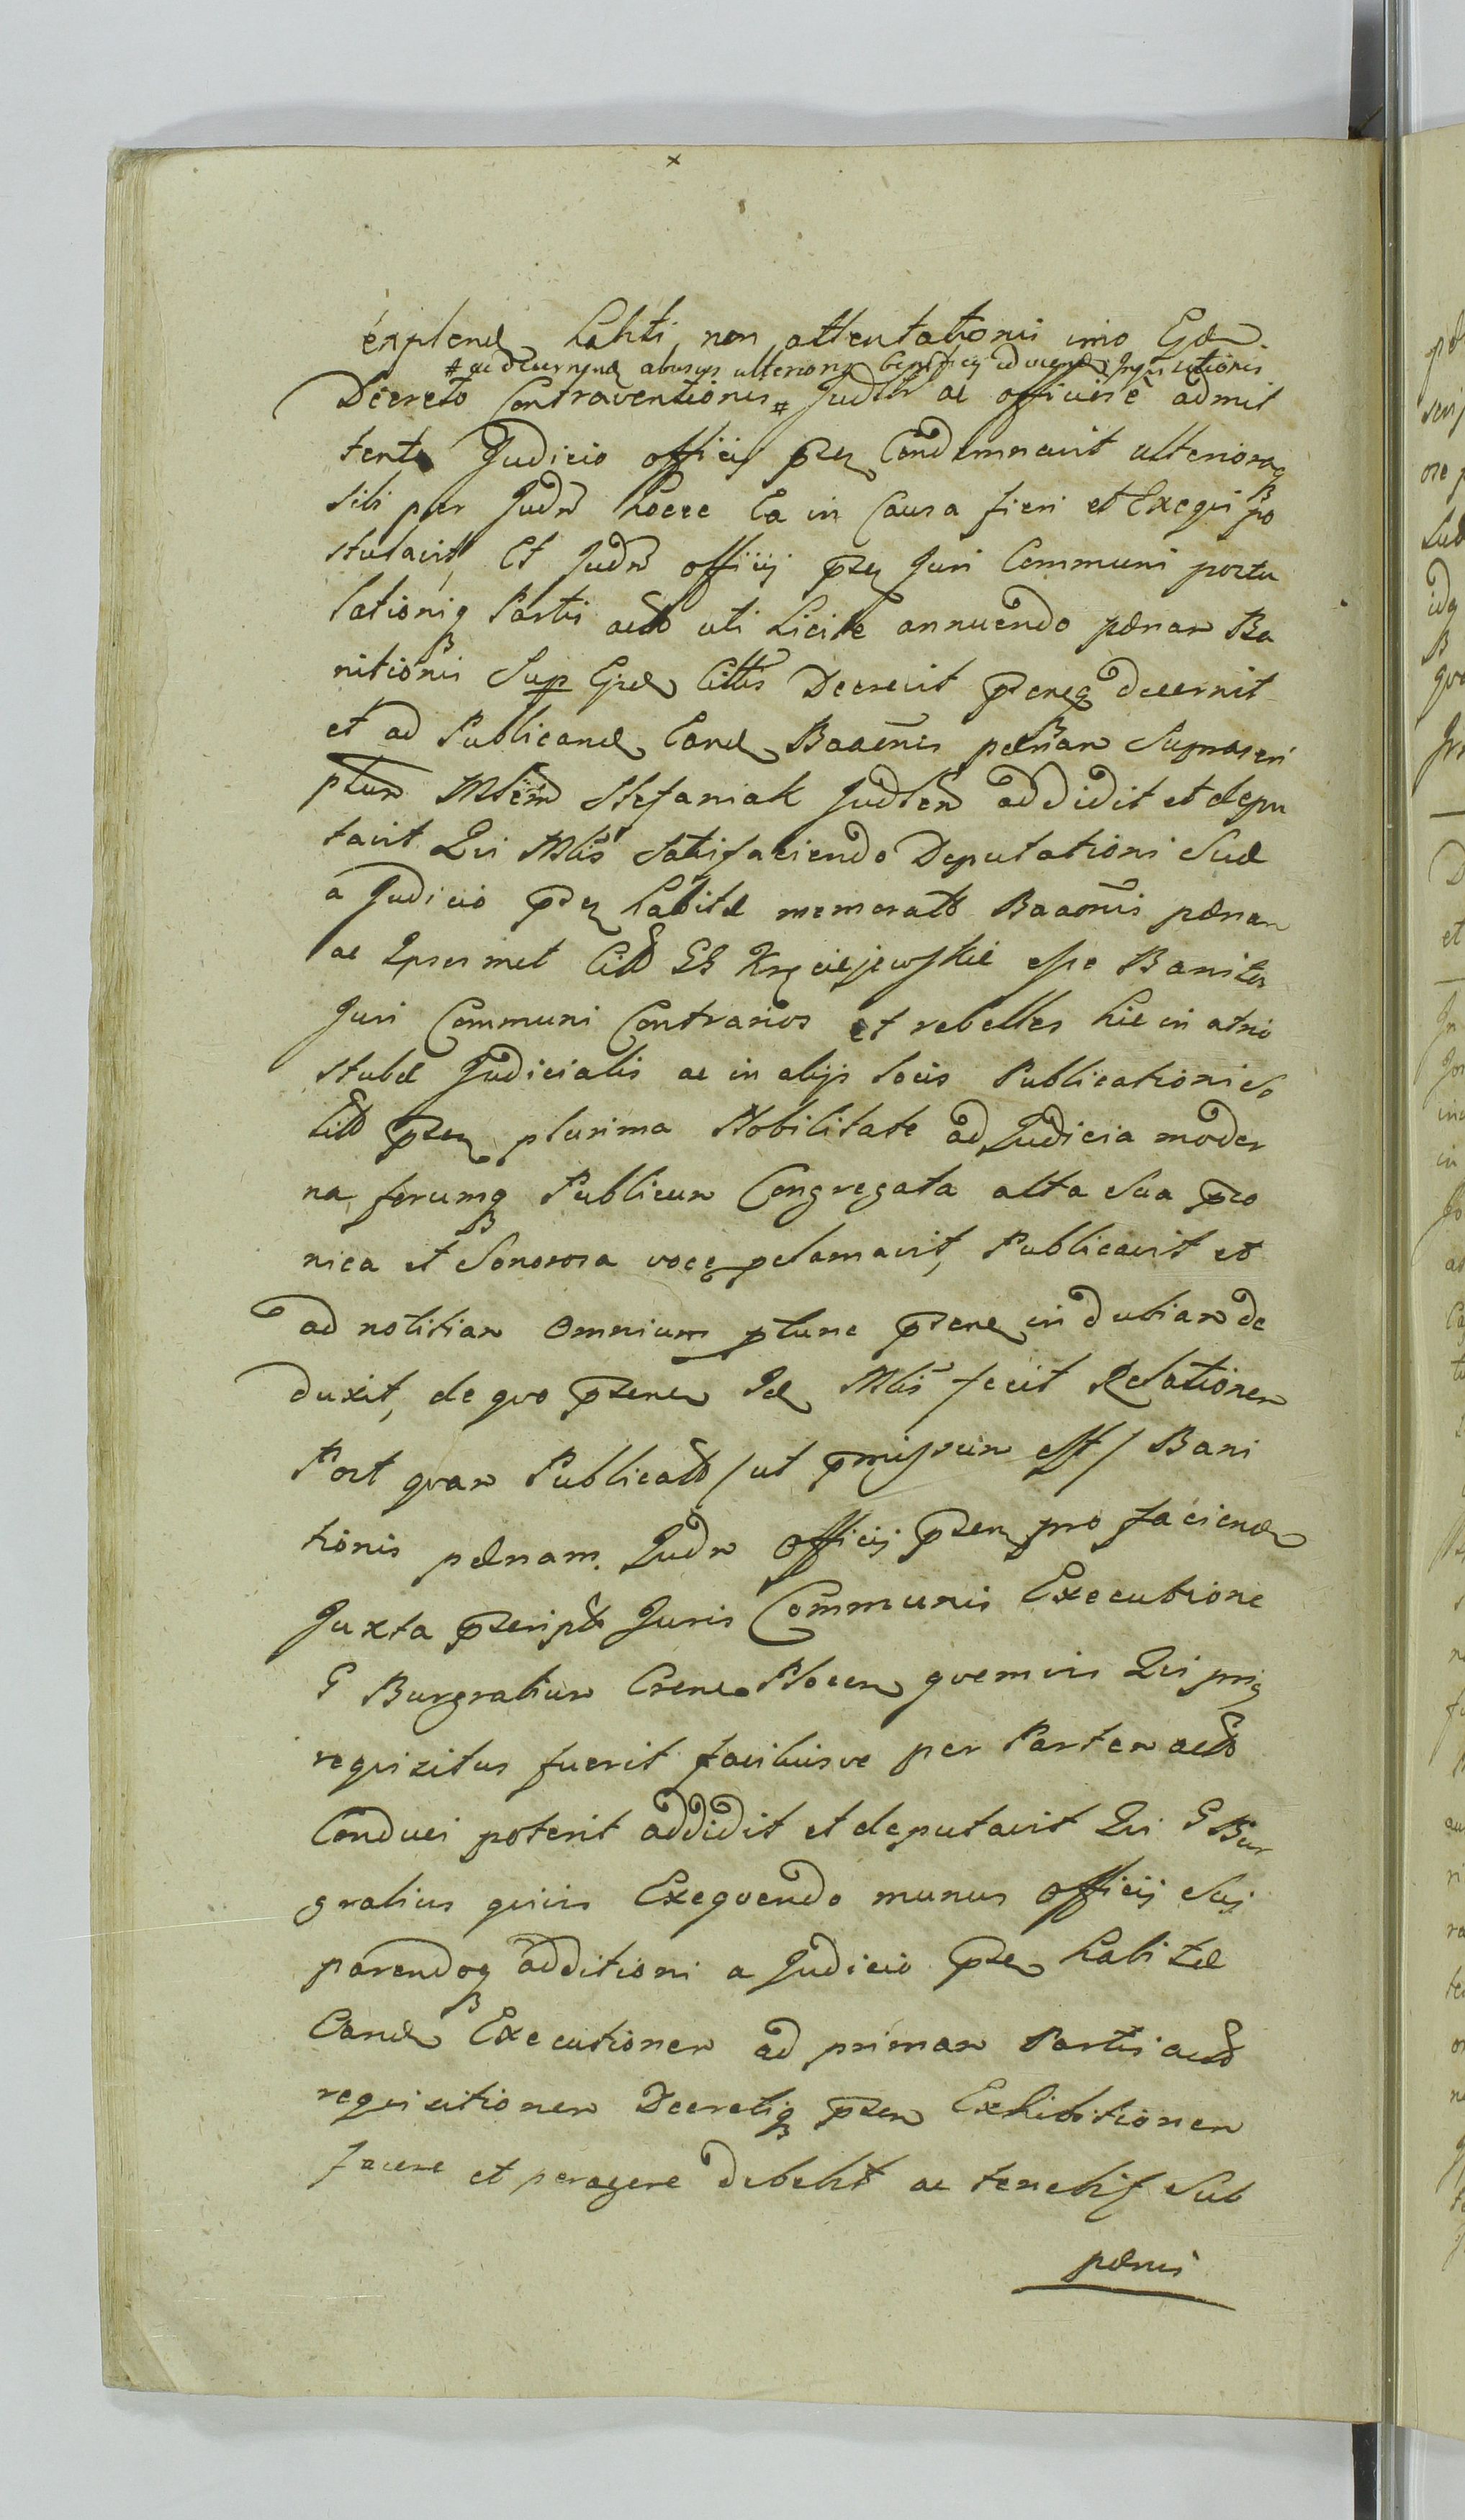 explend habiti non attentationis imo Eod
# ac decernend abusus ulteriorq beneficij adversus Inquisitionis
Decreto Contraventionis # Judtr ac officiose admit
tente Judicio officij psen Condemnavit ulteriorq
sibi per Judm hocce Ea in Causa fieri et Exequi po
stulavit, Et Judm officij psen Juri Communi postu
lationiq Partis actto uti Licite annuendo pænam Ba
nitionis Sup Citttis Decrevit decernit
et ad Publicand Eand Baaonis pænam Suprascri
ptum Mblem Stefaniak Judlem addidit et depu
tavit Qui Mblis satisfaciendo Deputationi Suæ
a Judicio psen habitæ memoratto Baaonis pænam
ac Ipsosmet Citt GG esse Banitos
Juri Communi Contrarios et rebelles hic in atrio
stubæ Judicialis ac in alijs locis Publicationi So
litt psen plurima Nobilitate ad Judicia moder
na forumq Publicum Congregata alta Sua pco
nica et Sonorosa voce pclamavit, Publicavit et
ad notitiam Omnium ptunc psene indubiam de
duxit, de quo Id Mblis fecit Relationem
Post quam Publicatt / ut pmissum est / Bani
tionis pænam. Judm Officij psen pro faciend
Juxta pscript Juris Communis Executione
G Burgrabium Crenem Plocen quemvis Qui prig
requisitus fuerit faciliusve per Partem actto
Conduci poterit addidit et deputavit Qui G Bur
grabius quivis Exequendo munus Officij Suj
parendoq additioni a Judicio psen habitæ
Eand Executionem ad primam Partis actto
requisitionem Decretiq psen Exhibitionem
facere et peragere debebit ac tenebit Sub
pænis